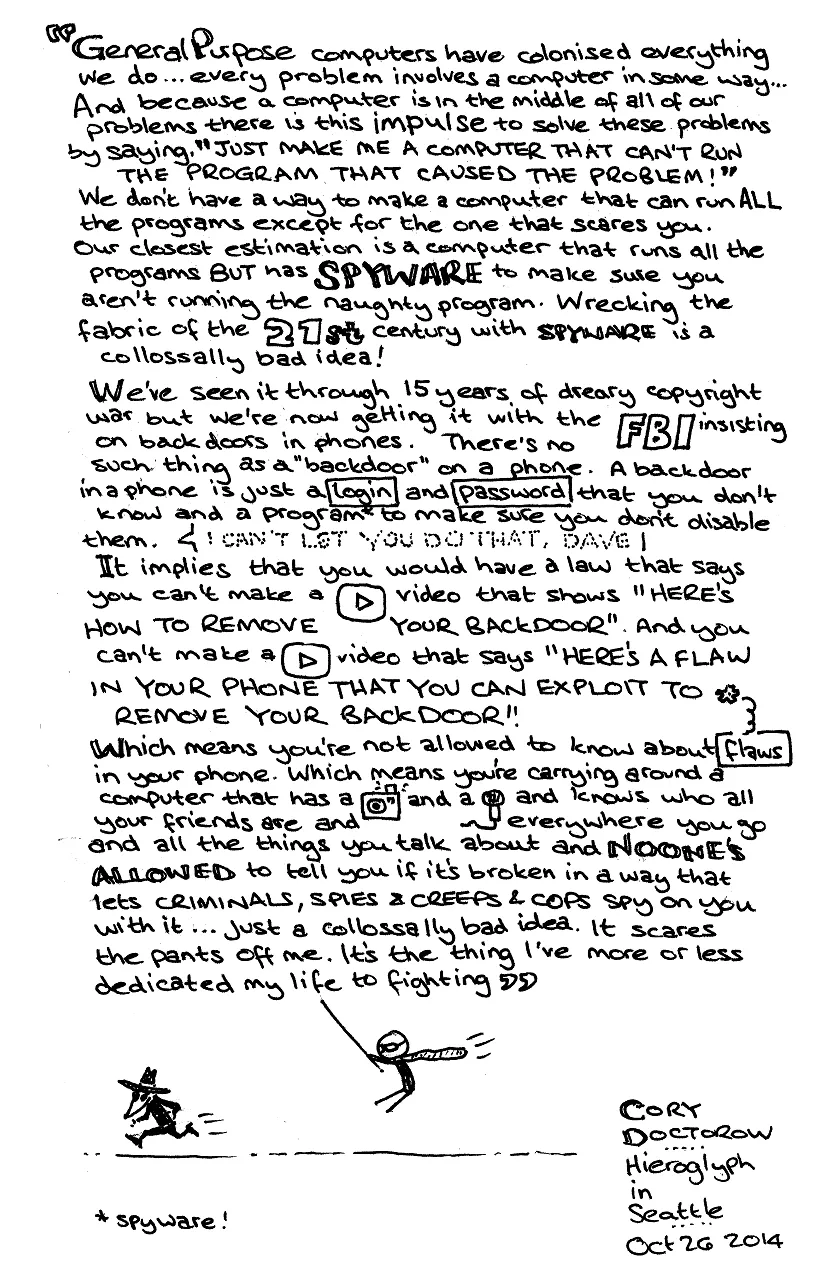 "General Purpose computers have colonised everything
we do... every problem involves a computer in some way...
And because a computer is in the middle of all of our
problems there is this impulse to solve these problems
by saying, "JUST MAKE ME A COMPUTER THAT CAN'T RUN
THE PROGRAM THAT CAUSED THE PROBLEM!"
We don't have a way to make a computer that can run ALL
the programs except for the one that scares you.
Our closest estimation is a computer that runs all the
programs BUT has SPYWARE to make sure you
aren't running the naughty program. Wrecking the
fabric of the 21st century with SPYWARE is a
collossally bad idea!
We've seen it through 15 years of dreary copyright
war but we're now getting it with the FBI insisting
on back doors in phones. There's no
such thing as a "backdoor" on a phone. A backdoor
in a phone is just a login and password that you don't
know and a program* to make sure you don't disable
them. < I CAN'T LET YOU DO THAT, DAVE |
It implies that you would have a law that says
you can't make a video that shows "HERE'S
HOW TO REMOVE YOUR BACKDOOR". And you
can't make a video that says "HERE'S A FLAW
IN YOUR PHONE THAT YOU CAN EXPLOIT TO
REMOVE YOUR BACKDOOR!!
Which means you're not allowed to know about flaws
in your phone. Which means you're carrying around a
computer that has a and a and knows who all
your friends are and everywhere you go
and all the things you talk about and NO ONE'S
ALLOWED to tell you if it's broken in a way that
lets CRIMINALS, SPIES & CREEPS & COPS SPY on you
with it... Just a collossally bad idea. It scares
the pants off me. It's the thing I've more or less
dedicated my life to fighting "
CORY
DOCTOROW
Hieroglyph
in
Seattle
Oct 26 2014
* spyware!